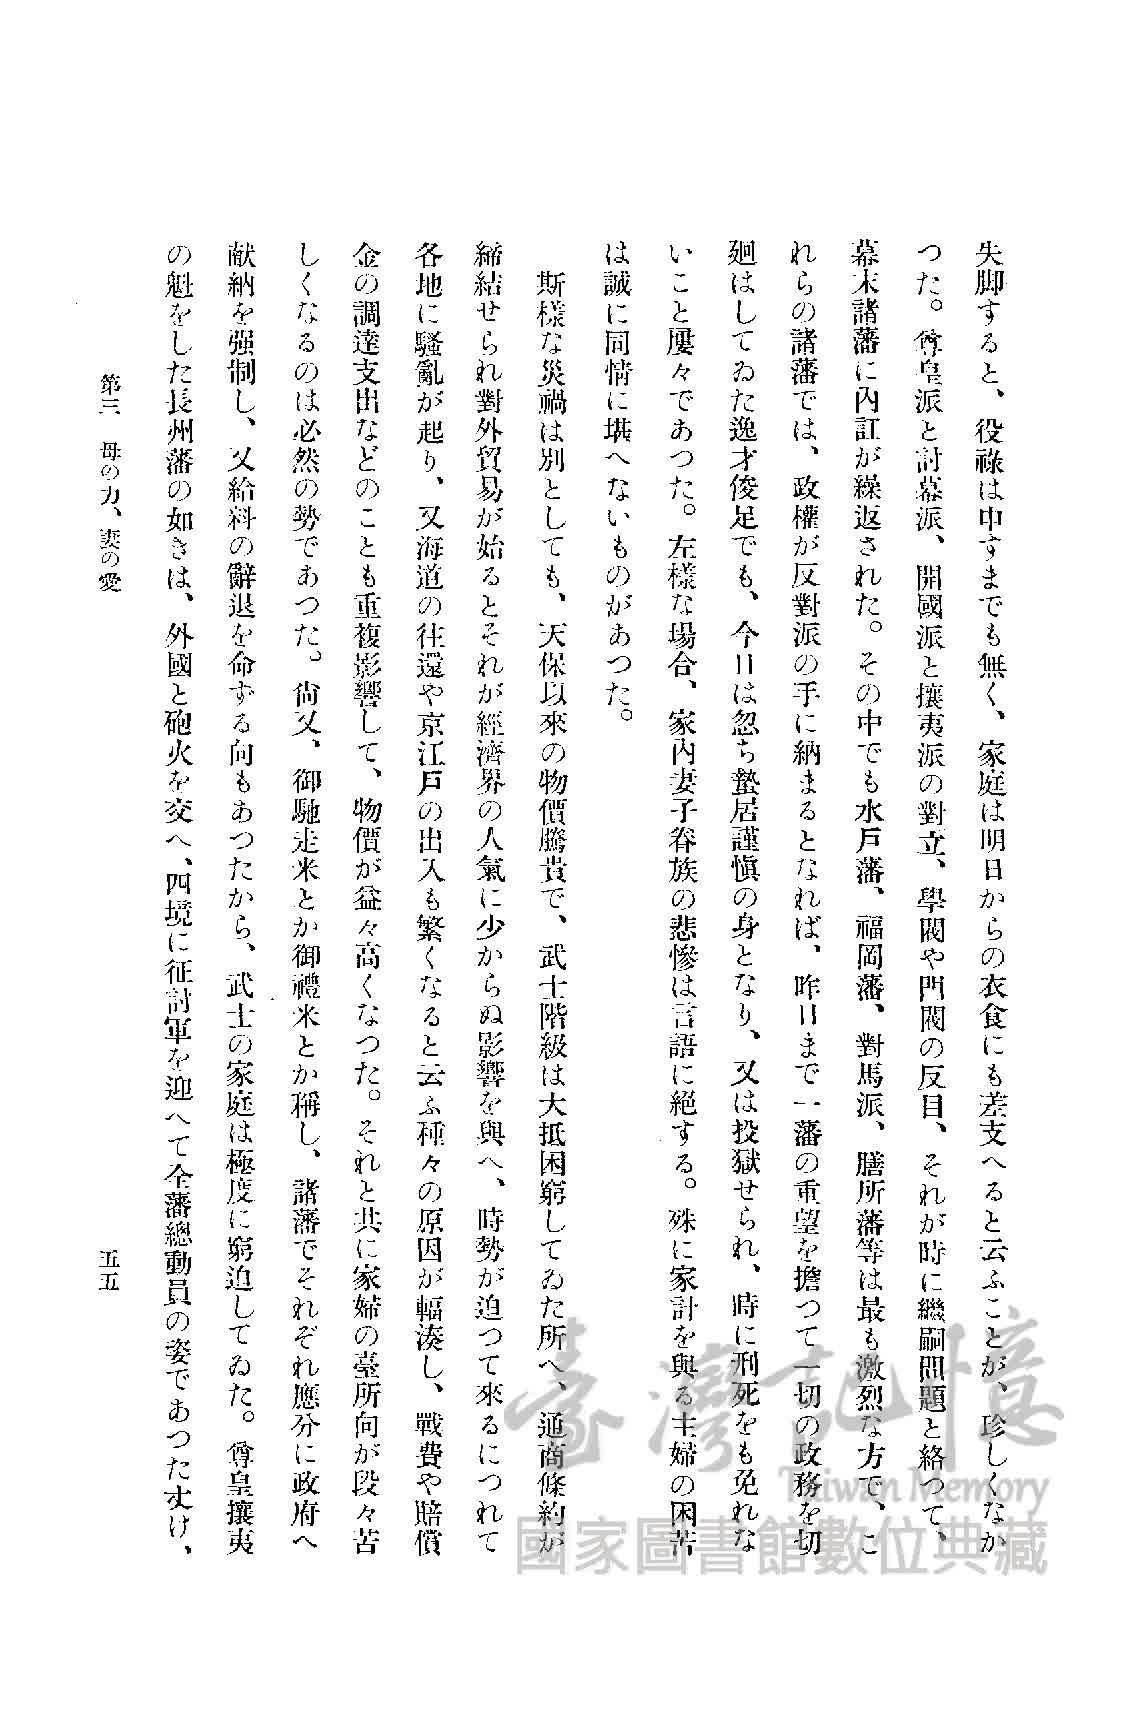 失脚すると、役祿は申すまでも無く、家庭は明日からの衣食にも差支へると云ふことが、珍しくなか
つた。尊皇派と討幕派、開國派と攘夷派の對立、學閥や門閥の反目、それが時に繼嗣問題と絡つて、
幕末諸藩に內訌が繰返された。その中でも水戶藩、福岡藩、對馬派、膳所藩等は最も激烈な方で、こ
れらの諸藩では、政權が反對派の手に納まるとなれば、昨日まで一藩の重望を擔つて一切の政務を切
廻はしてゐた逸才俊足でも、今日は忽ち蟄居謹愼の身となり、又は投獄せられ、時に刑死をも免れな
いこと屢々であつた。左樣な場合、家內妻子眷族の悲慘は言語に絕する。殊に家計を與る主婦の困苦
は誠に同情に堪へないものがあつた。
斯樣な災禍は別としても、天保以來の物價騰貴で、武士階級は大抵困窮してゐた所へ、通商條約が
締結せられ對外貿易が始るとそれが經濟界の人氣に少からぬ影響を與へ、時勢が迫つて來るにつれて
各地に騷亂が起り、又海道の往還や京江戶の出入も繁くなると云ふ種々の原因が輻湊し、戰費や賠償
金の調達支出などのことも重複影響して、物價が益々高くなつた。それと共に家婦の臺所向が段々苦
しくなるのは必然の勢であつた。尙又、御馳走米とか御禮米とか稱し、諸藩でそれぞれ應分に政府へ
献納を强制し、又給料の辭退を命ずる向もあつたから、武士の家庭は極度に窮迫してゐた。尊皇攘夷
の魁をした長州藩の如きは、外國と砲火を交へ、四境に征討軍を迎へて全藩總動員の姿であつた丈け、
第三 母の力、妻の愛
五五
臺灣記憶
Taiwan Memory
國家圖書館數位典藏